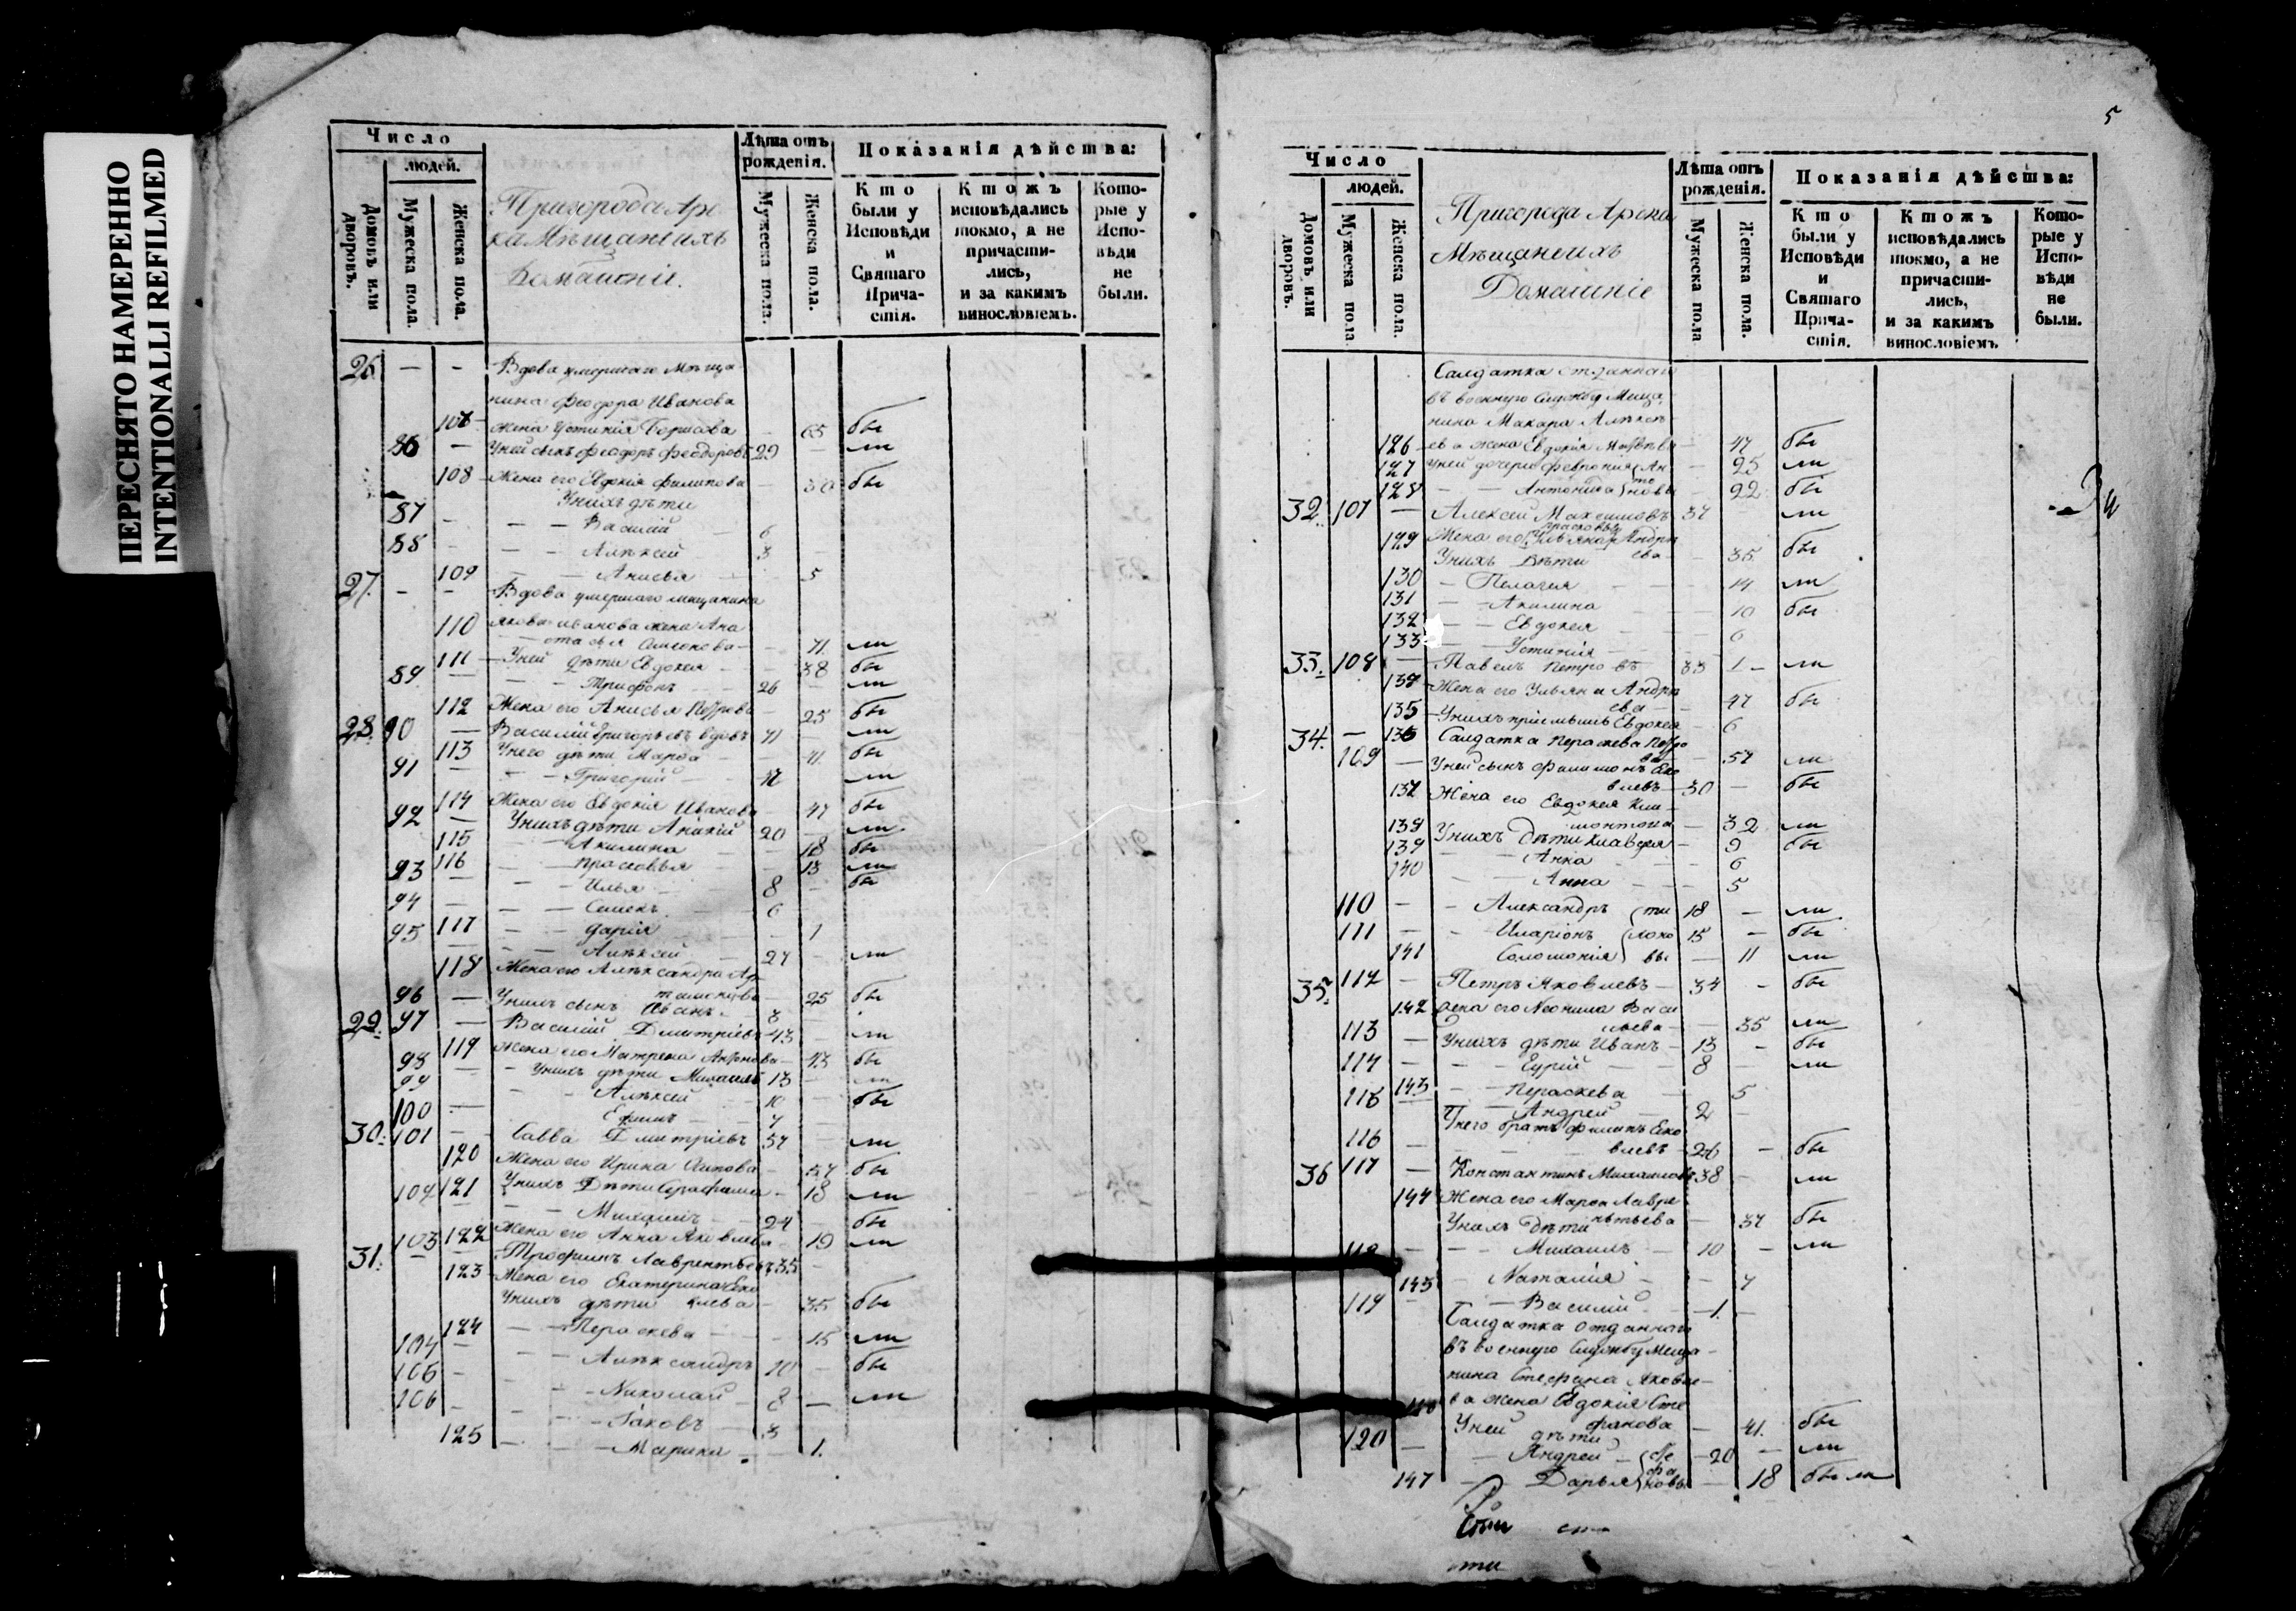 ПЕРЕСНЯТО НАМЕРЕННО
INTENTIONALLI REFILMED
Число
людей.
Домовъ или дворовъ.
Мужеска пола.
Женска пола.
Пригорода Арс
ка Мѣщане ихъ
Домашніе.
Лѣта отъ рожденія.
Мужеска пола.
Женска пола.
Показанія дѣйства:
Кто были у Исповѣди и Святаго Прича-стія.
Ктожъ исповѣдались токмо, а не причасти-лись, и за какимъ винословіемъ.
Кото-рые у Испо-вѣди не были.
26 — - Вдова умершаго Мѣща
нина Феодора Иванова
107 - жена Устинія Борисова 65 бы
86 — Уней сынъ Феодоръ Феодоровъ 29 — ли
108 - Жена его Евдокія Филипова — 30 бы
Унихъ дѣти
87 - — — Василій 6
88 - — — Алѣксей 3
109 — — Анисья 5
27. - — Вдова умершаго мещанина
110 Якова Иванова жена Ана
— стасья Симонова — 71. ли
111 — Уней дѣти Евдокея — 38 бы
89. — — Трифонъ — 26 — ли
112 Жена его Анисья Петрова — 25 бы
28. 90 — Василій Григорьевъ вдовъ 71 — ли
113 Унего дѣти Марѳа — 41. бы
91 — — Григорій — 42 ли
114 Жена его Евдокія Иванова 47 бы
92 — Унихъ дѣти Ананій 20 — ли
115 — Акилина — 18 бы
116 — Прасковья — 13 ли
93 — — Илья 8 — бы
94 — — — Семенъ 6
117 — — Дарія — 1
95 — — — Алѣксей — 27 — ли
118 Жена его Алѣксандра Ар
тамонова — 25 бы
96 — Унихъ сынъ Иванъ — 3
29. 97 — Василій Дмитріевъ 43 — ли
119 Жена его Матрена Антонова — 43 бы
98 — - Унихъ дѣти Михаилъ 13 — ли
99 — - Алѣксей 10 — бы
100 — Ефимъ — 7
30. 101 — Савва Дмитріевъ 57 — ли
120 Жена его Ирина Осипова — 57 бы
121 Унихъ Дѣти Серафима — 18 ли
102 — — Михаилъ — 24 — бы
122 Жена его Анна Яковлева — 19 ли
31. 103 — Трофимъ Лаврентьевъ 35 —
123 - Жена его Екатерина Еко
Унихъ дѣти влева — 35 бы
124 — — Пераскева — 15 ли
104 — — Алѣксандръ 10 — бы
105 - — Николай 8 — ли
106 - — — Іаковъ — 3
125 — — Марина — 1.
5
Число
людей.
Домовъ или дворовъ.
Мужеска пола
Женска пола.
Пригорода Арска
Мѣщане ихъ
Домашніе
Лѣта отъ рожденія.
Мужеска пола
Женска пола.
Показанія дѣйства:
Кто были у Исповѣди и Святаго Прича-стія.
Ктожъ исповѣдались токмо, а не причасти-лись, и за какимъ винословіемъ
Кото-рые у Испо-вѣди не были.
Салдатка отданнаго
въ военную Службу Меща
нина Макара Алѣксѣ
126 - ева жена Евдокія 47 бы
127 Уней дочери Феврония — 25 ли
128 — — Антонида — 22 бы
32. 107 — Алексей Максимовъ 37 ли
Прасковья
129 Жена его Ульяна Андрѣ
Унихъ Дѣти ева — 35. бы
130 — Пелагея — 14 ли
131 — — Акилина — 10 бы
132 — — Евдокея — 6
133 — Устинія — 1 —
33. 108 — Павелъ Петровъ 33 ли
134 - Жена его Ульяна Андрѣ
ева — 47 бы
135 - Унихъ пріемышъ Евдокея — 6
34. — 136 Салдатка Пераскева Петро
ва — 57 ли
109 — Уней сынъ Филимонъ Еко
влевъ — 30 — бы
137 Жена его Евдокея
— 32 ли
138 Унихъ Дѣти Клавдея — 9 бы
139 — — Анна — 6
140 — — Анна — 5
110 — - Александръ 18 — ли
111 — - Иларіонъ 15 — бы
141 Соломонія — 11 ли
35. 112 — Петръ Яковлевъ — 34 - бы
142 жена его Неонила Васи
льева — 35 ли
113 — Унихъ дѣти Иванъ — 13 - бы
114 — — — Еурій — 8 — ли
143 — — Пераскева — 5
115 — — Андрей — 2 —
Унего братъ Филипъ Еко
116 — влевъ — 26 - бы
36 117 — Константинъ Михаиловъ 38 — ли
144 Жена его Марѳа Лаврѣ
Унихъ Дѣти нтьева — 37 бы
118 — — Михаилъ — 10 - ли
145 — Наталія — 7
119 — Василій — 1. —
Салдатка отданнаго
въ военную Службу Меща-
нина Стефана Яковле-
146 ва жена Евдокія Сте
Уней фанова — 41. бы
дѣти
120 — — Андрей — 20 — ли
147 — Дарья — 18 были